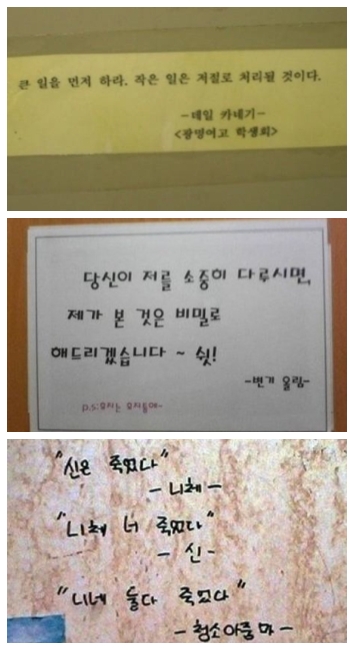 큰 일을 먼저 하라. 작은 일은 저절로 처리될 것이다.
-데일 카네기-
<광명여고 학생회>
당신이 저를 소중히 다루시면,
제가 본 것은 비밀로
해드리겠습니다 ~ 쉿!
-변기 올림-
P.S:휴지는 휴지통에~
"신은 죽었다"
- 니체 -
"니체 너 죽었다"
- 신 -
"니네 둘다 죽었다"
- 청소아줌마 -